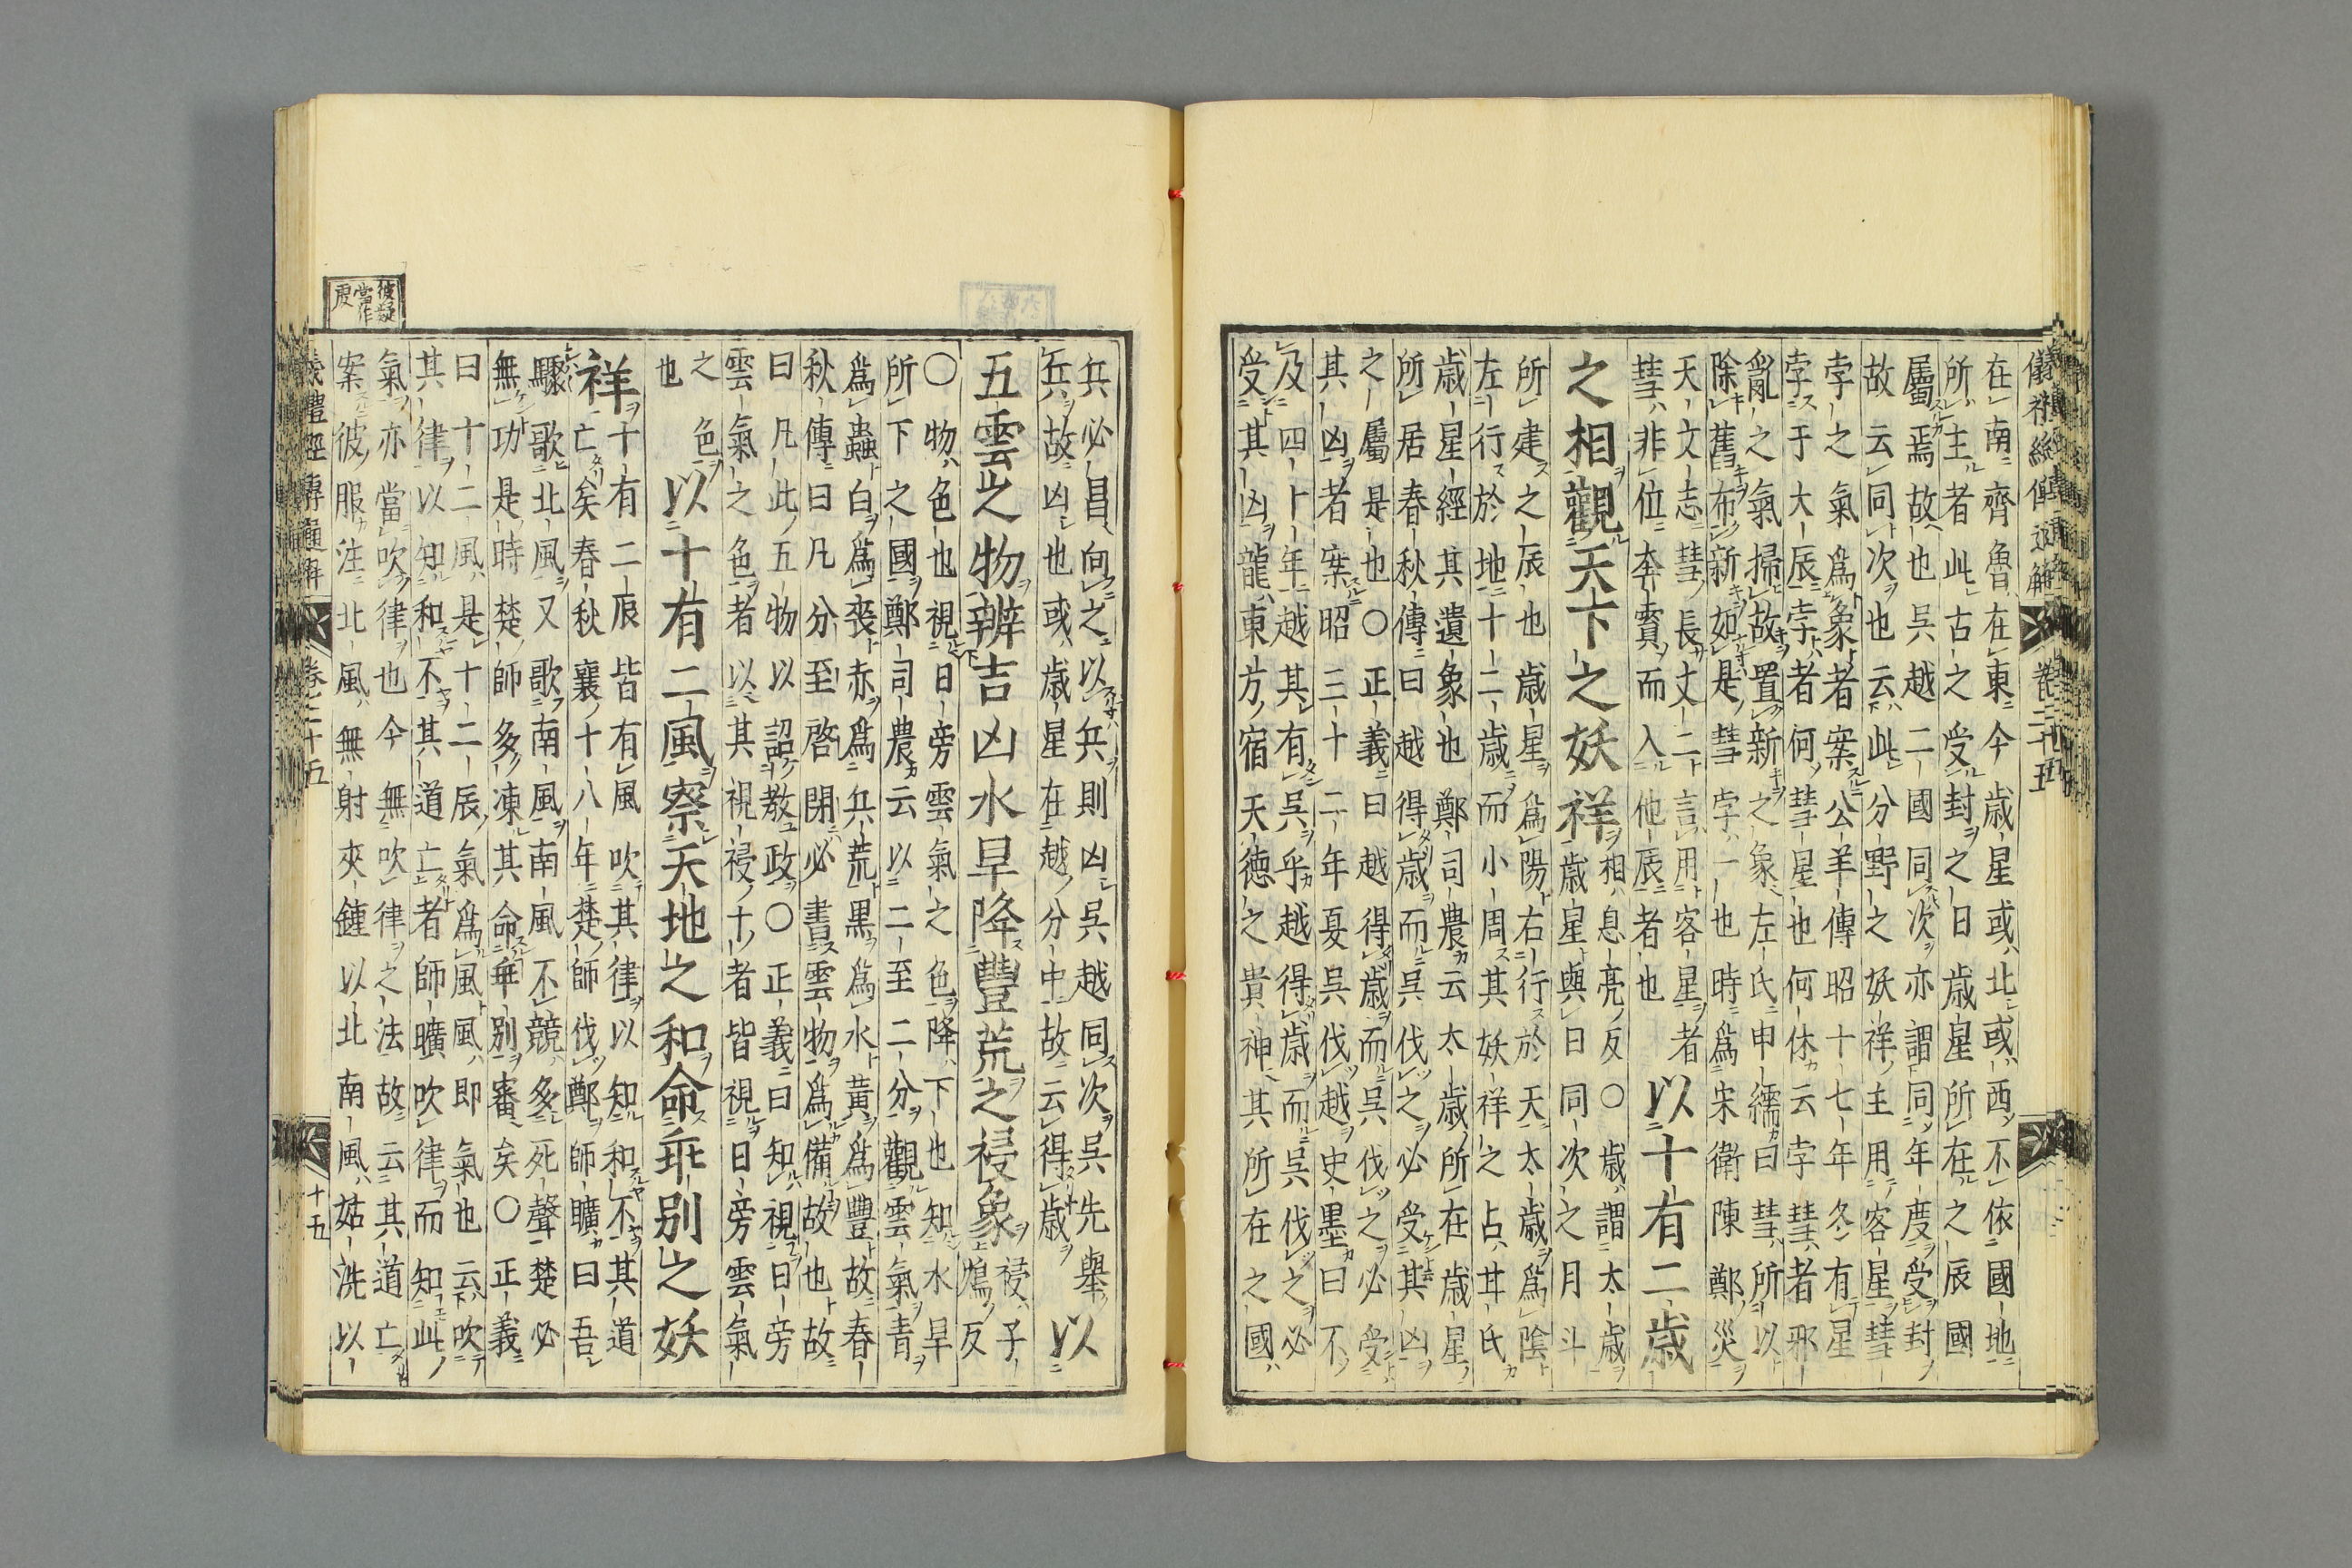 儀禮經傳通解 卷二十五
在南齊魯在東今歳星或北或西不依國地
所主者此古之受封之日歳星所在之辰國
屬焉故也呉越二國同次亦謂同年度受封
故云同次也云此分野之妖祥主用客星彗
孛之氣爲象者案公羊傳昭十七年冬有星
孛于大辰孛者何彗星也何休云孛彗者邪
亂之氣掃故置新之象左氏申繻曰彗所以
除舊布新如是彗孛一也時爲宋衛陳鄭災
天文志彗長丈二言用客星者
彗非位奔賁而入他辰者也
以十有二歳
之相觀天下之妖祥
相息亮反○歳謂太歳
歳星與日同次之月斗
所建之辰也歳星爲陽右行於天太歳爲陰
左行於地十二歳而小周其妖祥之占甘氏
歳星經其遺象也鄭司農云太歳所在歳星
所居春秋傳曰越得歳而呉伐之必受其凶
之屬是也○正義曰越得歳而呉伐之必受
其凶者案昭三十二年夏呉伐越史墨曰不
及四十年越其有呉乎越得歳而呉伐之必
受其凶龍東方宿天德之貴神其所在之國
兵必昌向之以兵則凶呉越同次呉先舉
兵故凶也或歳星在越分中故云得歳
以
五雲之物辨吉凶水旱降豐荒之祲象
祲子
鴆反
○物色也視日旁雲氣之色降下也知水旱
所下之國鄭司農云以二至二分觀雲氣青
爲蟲白爲喪赤爲兵荒黒爲水黃爲豐故春
秋傳曰凡分至啓閉必書雲物爲備故也故
曰凡此五物以詔救政○正義曰知視日旁
雲氣之色者以其視祲十者皆視日旁雲氣
之色
也
以十有二風察天地之和命乖别之妖
祥
十有二辰皆有風吹其律以知和不其道
亡矣春秋襄十八年楚師伐鄭師曠曰吾
驟歌北風又歌南風南風不競多死聲楚必
無功是時楚師多凍其命乖别審矣○正義
曰十二風是十二辰氣爲風風即氣也云吹
其律以知和不其道亡者師曠吹律而知此
氣亦當吹律也今無吹律之法故云其道亡
案彼服注北風無射夾鐘以北南風姑洗以
彼疑
當作
虔
儀禮經傳通解 卷二十五 十五